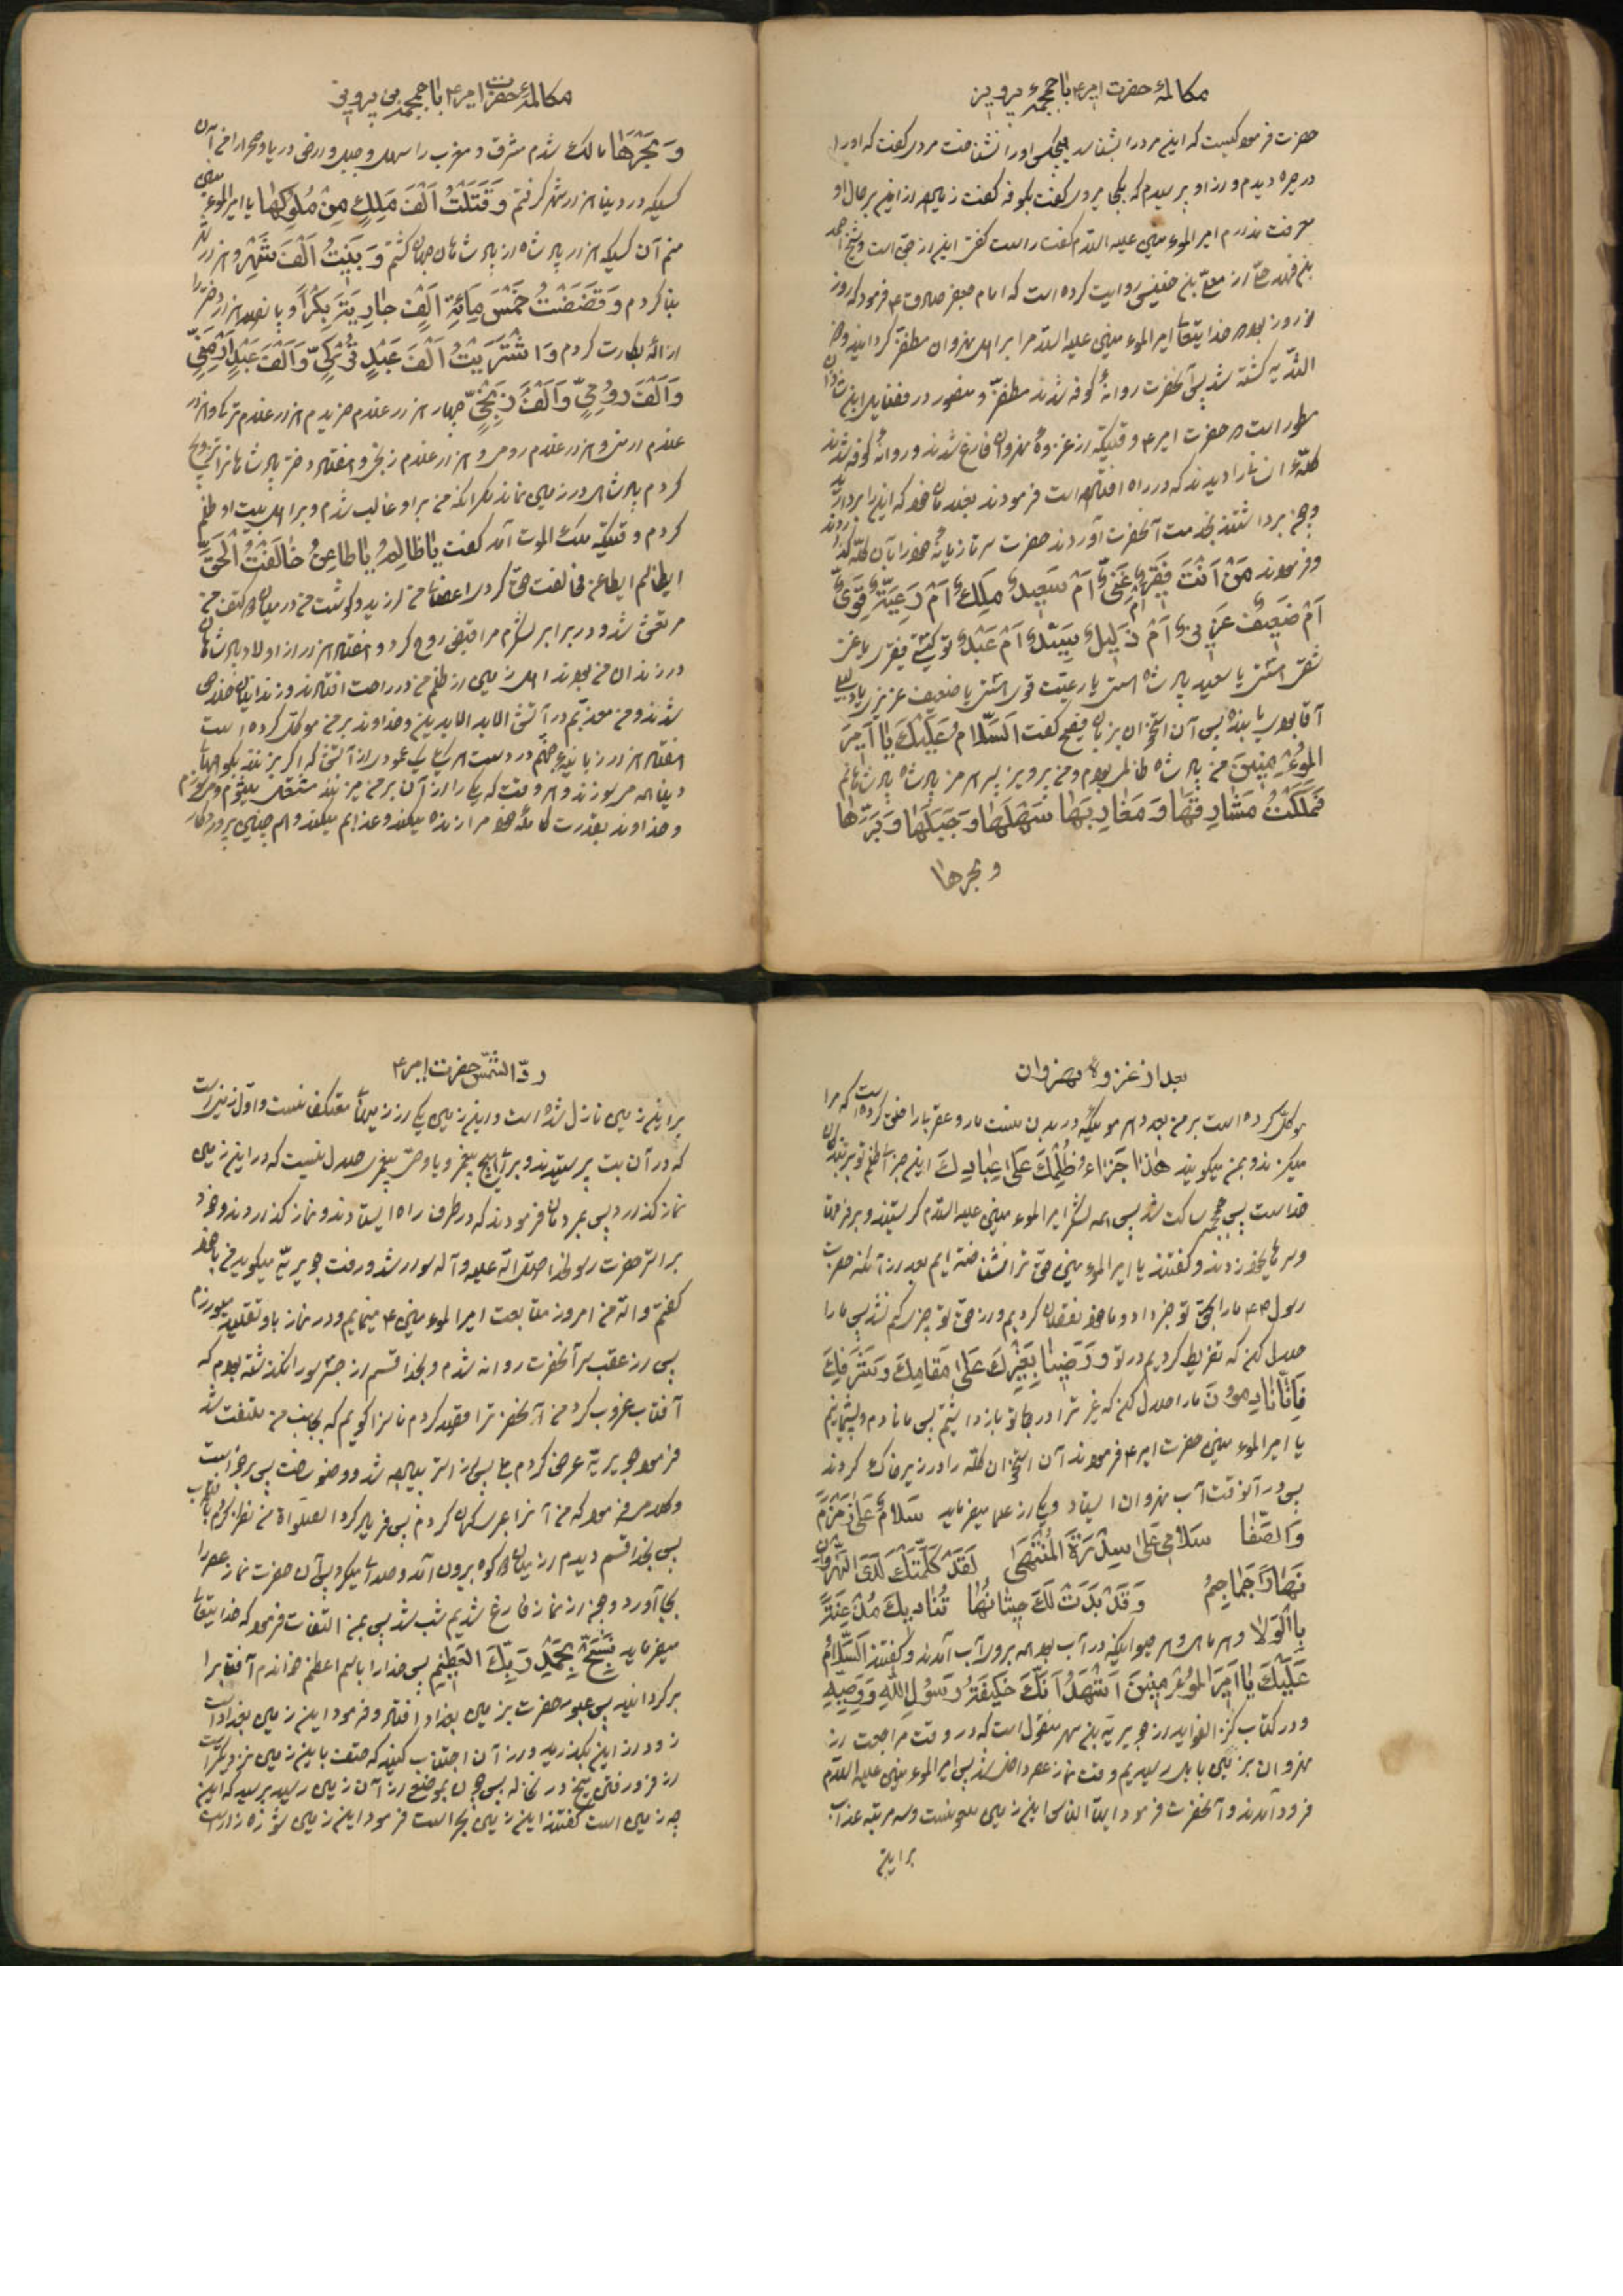 مکالمۀ حضرت امیر ۴ با جمجمۀ پرویز
حضرت فرمود کیست که این مرد را بشناسد هیچکس او را نشناخت مردی گفت که او را
در حیره دیدم و از او پرسیدم که بکجا میروی گفت بکوفه گفت زیاده از این بر حال او
معرفت ندارم امیر المؤمنین علیه السلام گفت راست گفتی این از جن است و شیخ احمد
بن فهد حلی از معلی بن خنیس روایت کرده است که امام جعفر صادق ۴ فرمود که روز
نوروز بود که خدایتعالی امیر المؤمنین علیه السلام را بر اهل نهروان مظفر گردانید و ذو
الثدیه کشته شد پس آنحضرت روانۀ کوفه شدند مظفر و منصور در فضایل ابن شاذان
مسطور است که حضرت امیر ۴ وقتیکه از غزوۀ نهروان فارغ شدند و روانۀ کوفه شدند
کلۀ انسانی را دیدند که در راه افتاده است فرمودند بغلامان خود که این را بردارید
و چون برداشتند بخدمت آنحضرت آوردند حضرت سر تازیانۀ خود را بآن کله زدند
و فرمودند مَنْ اَنْتَ فَقیرٌ اَمْ غَنِیٌّ شَقِیٌّ اَمْ سَعیدٌ مَلِكٌ اَمْ رَعِیَّةٌ قَوِیٌّ
اَمْ ضَعیفٌ عَزیزٌ اَمْ ذَلیلٌ سَیِّدٌ اَمْ عَبْدٌ تو کیستی فقیری یا غنی
شقی استی یا سعید پادشاه استی یا رعیت قوی استی یا ضعیف عزیزی یا ذلیل
آقا بودی یا بنده پس آن استخوان بزبان فصیح گفت اَلسَّلامُ عَلَیْكَ یا اَمیرَ
الْمُؤْمِنینَ من پادشاه ظالم بودم و من پرویز پسر هرمز پادشاه پادشاهانم
فَمَلَكْتُ مَشارِقَها وَ مَغارِبَها سَهْلَها وَ جَبَلَها وَ بَرَّها
و بحرها
مکالمۀ حضرت امیر ۴ با جمجمۀ پرویز
وَ بَحْرَها مالک شدم مشرق و مغرب را سهل و جبل و ارض دریا و صحرا را من آن
کسیکه در دنیا هزار شهر گرفتم وَ قَتَلْتُ اَلْفَ مَلِكٍ مِنْ مُلُوكِها یا امیر المؤمنین
منم آن کسیکه هزار پادشاه از پادشاهان جهان کشتم وَ بَنَیْتُ اَلْفَ شَهْرٍ و هزار شهر
بنا کردم وَ فَضَضْتُ خَمْسَ مِائَةِ اَلْفِ جارِیَةٍ بِكْراً و پانصد هزار دختر را
ازالۀ بکارت کردم وَ اشْتَرَیْتُ اَلْفَ عَبْدٍ تُرْكِیٍّ وَ اَلْفَ عَبْدٍ اَرْمَنِیٍّ
وَ اَلْفَ رُومِیٍّ وَ اَلْفَ زَنْجِیٍّ چهار هزار غلام خریدم هزار غلام ترکی و هزار
غلام ارمنی و هزار غلام رومی و هزار غلام زنجی و هفتاد دختر پادشاهان را تزویج
کردم پادشاهی در زمین نماند مگر اینکه من بر او غالب شدم و بر اهل بیت او ظلم
کردم وقتیکه ملک الموت آمد گفت یا ظالِمُ یا طاغِیُ خالَفْتَ الْحَقَّ
ای ظالم ای طاغی مخالفت حق کردی اعضای من لرزید و گوشت من در میان دو کتف من
مرتعش شد و در برابر لشکرم مرا قبض روح کرد و هفتاد هزار از اولاد پادشاهان
در زندان من بودند اهل زمین از ظلم من در راحت افتادند و زندانیان خلاص
شدند و من معذبم در آتش ابد الابدین و خداوند بر من موکل کرده است
هفتاد هزار زبانیۀ جهنم در دست هر یکی عمودی از آتش که اگر بزنند بکوههای
دنیا همه میسوزند و هر وقت که یکی از آن بر من میزنند مشتعل میشوم و میسوزم
و خداوند بقدرت کاملۀ خود مرا زنده میکند و عذابم میکند و هم چنین پروردگار
بعد از غزوۀ نهروان
موکل کرده است بر من بعدد هر موئیکه در بدن منست مار و عقربها را خلق کرده است که مرا
میگزند و بمن میگویند هٰذا جَزاءُ ظُلْمِكَ عَلیٰ عِبادِكَ این جزای ظلم تو بر بندگان
خداست پس جمجمه ساکت شد پس همه لشکر امیر المؤمنین علیه السلام گریستند و بر فرقها
و سرهای خود زدند و گفتند یا امیر المؤمنین حق ترا نشناخته ایم بعد از آنکه حضرت
رسول ۴ ما را بحق تو خبر داد و ما خود نقصان کردیم و از حق تو چیزی کم نشد پس ما را
حلال کن که تفریط کردیم در تو وَ رَضینا بِغَیْرِكَ عَلیٰ مَقامِكَ وَ شَرَفِكَ
فَاِنّا نادِمُونَ ما را حلال کن که غیر ترا در جای تو باز داشتیم پس ما نادم و پشیمانیم
یا امیر المؤمنین حضرت امیر ۴ فرمودند آن استخوان کله را در زیر خاک کردند
پس در آنوقت آب نهروان ایستاد و یکی از علما میفرماید سَلامی عَلیٰ زَمْزَمَ
وَ الصَّفا سَلامی عَلیٰ سِدْرَةِ الْمُنْتَهیٰ لَقَدْ كَلَّمَتْكَ لَدَی النَّهْرَوانِ
نَهاراً جَماجِمُ وَ قَدْ بَدَتْ لَكَ حیتانُها تُنادیكَ مُذْعِنَةً
بِالْوَلا و هر ماهی و هر حیوانیکه در آب بود همه بروی آب آمدند و گفتند اَلسَّلامُ
عَلَیْكَ یا اَمیرَ الْمُؤْمِنینَ اَشْهَدُ اَنَّكَ خَلیفَةُ رَسُولِ اللّٰهِ وَ وَصِیُّهُ
و در کتاب کنز الفواید از جویریة بن مسهر منقول است که در وقت مراجعت از
نهروان بزمین بابل رسیدیم وقت نماز عصر داخل شد پس امیر المؤمنین علیه السلام
فرود آمدند و آنحضرت فرمود ایها الناس این زمین ملعونست و سه مرتبه عذاب
بر این
ردّ الشمس حضرت امیر ۴
بر این زمین نازل شده است و این زمین یکی از زمینهای مؤتفکه است و اول زمینی است
که در آن بت پرستیدند و برای هیچ پیغمبر و یا وصی پیغمبر حلال نیست که در این زمین
نماز گذارد پس بمردمان فرمودند که در طرف راه ایستادند و نماز گذاردند و خود
بر استر حضرت رسولخدا صلی الله علیه و آله سوار شد و رفت جویریه میگوید من با خود
گفتم والله من امروز متابعت امیر المؤمنین ۴ مینمایم و در نماز باو تقلید میورزم
پس از عقب سر آنحضرت روانه شدم و بخدا قسم از جسر سورا نگذشته بودم که
آفتاب غروب کرد
فرمود جویریه عرض کردم بلی پس از استر پیاده شد و وضو ساخت پس برخواست
پس بخدا قسم دیدم از میان دو کوه بیرون آمد و صدا میکرد پس آن حضرت نماز عصر را
بجا آورد و چون از نماز فارغ شدیم شب شد پس بمن التفات فرمود که خدایتعالی
میفرماید فَسَبِّحْ بِحَمْدِ رَبِّكَ الْعَظیمِ پس خدا را باسم اعظم خواندم آفتاب را
برگردانید پس عبور حضرت بزمین بغداد افتاد و فرمود این زمین بغداد است
زود از این بگذرید و از آن اجتناب کنید که خسف باین زمین نزدیکتر است
از فرو رفتن میخ در نخاله پس چون بموضع از آن زمین رسید پرسید که این
چه زمین است گفتند این زمین بحرا است فرمود این زمین شوره زار است